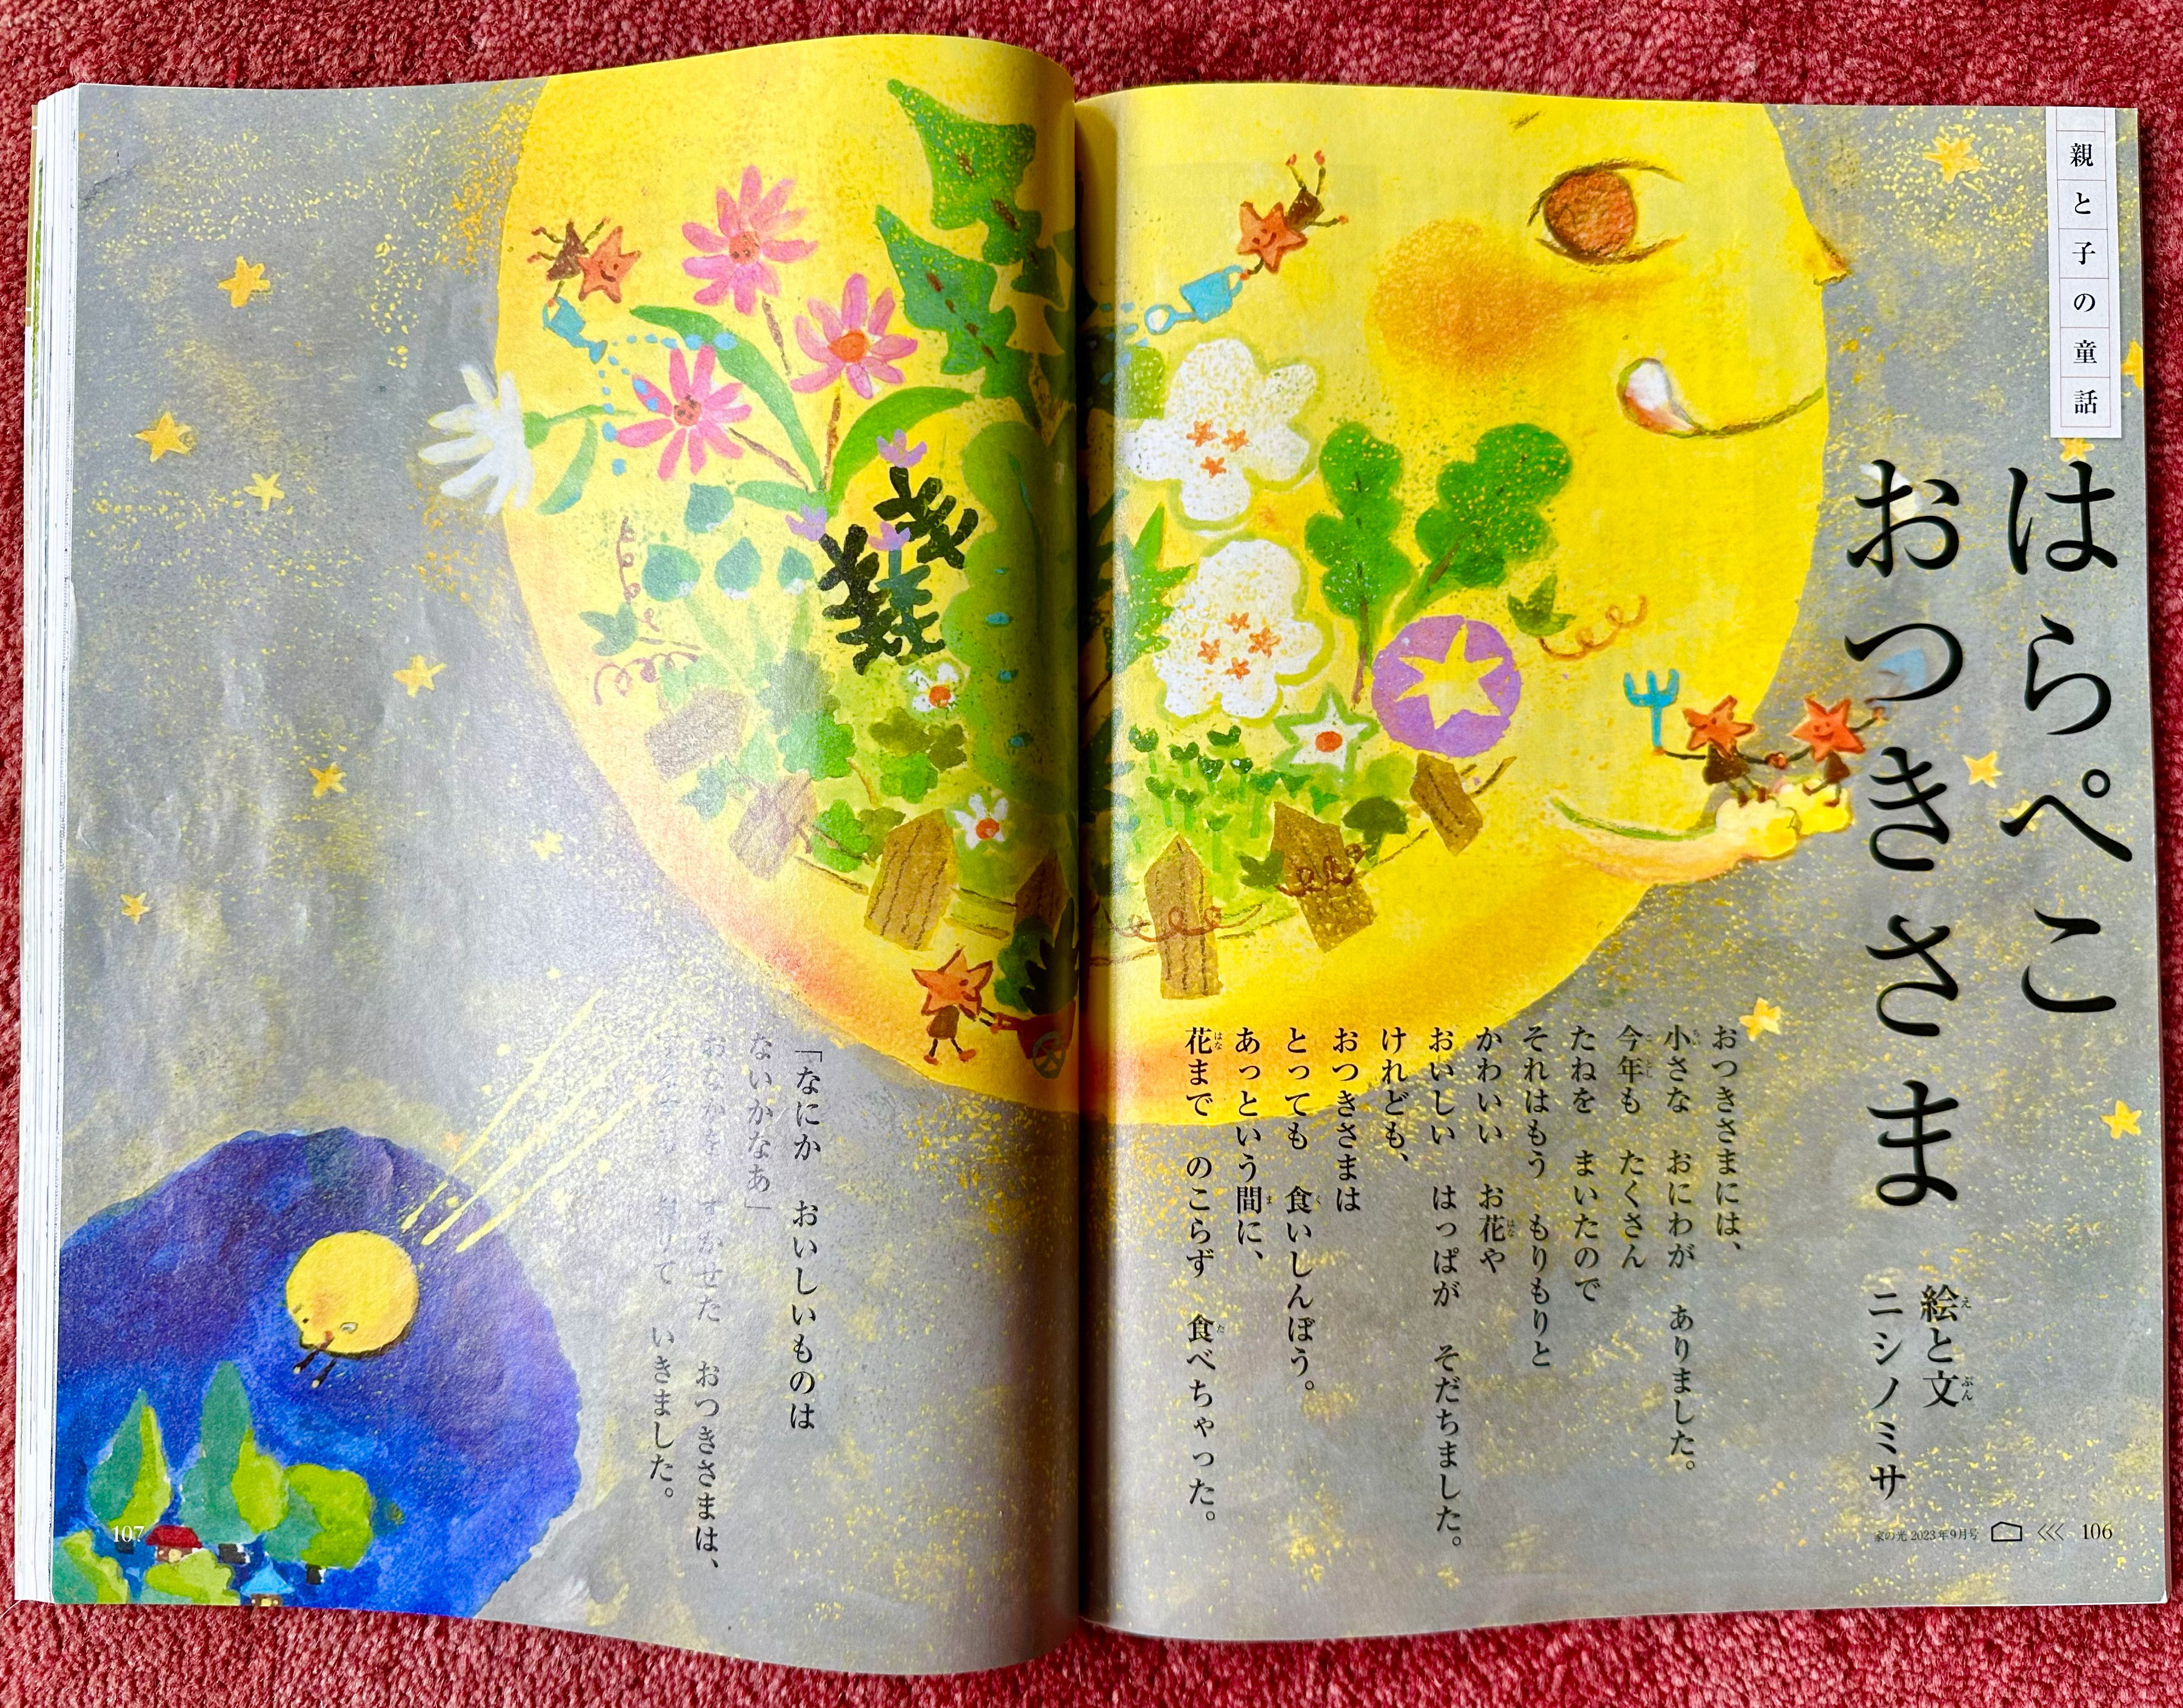 親と子の童話
はらぺこ
おつきさま
絵と文
ニシノミサ
おつきさまには、
小さな　おにわが　ありました。
今年も　たくさん
たねを　まいたので
それはもう　もりもりと
かわいい　お花や
おいしい　はっぱが　そだちました。
けれども、
おつきさまは
とっても　食いしんぼう。
あっという間に、
花まで　のこらず　食べちゃった。
家の光 2023年9月号
106
「なにか　おいしいものは
ないかなあ」
おなかを　すかせた　おつきさまは、
いきました。
107